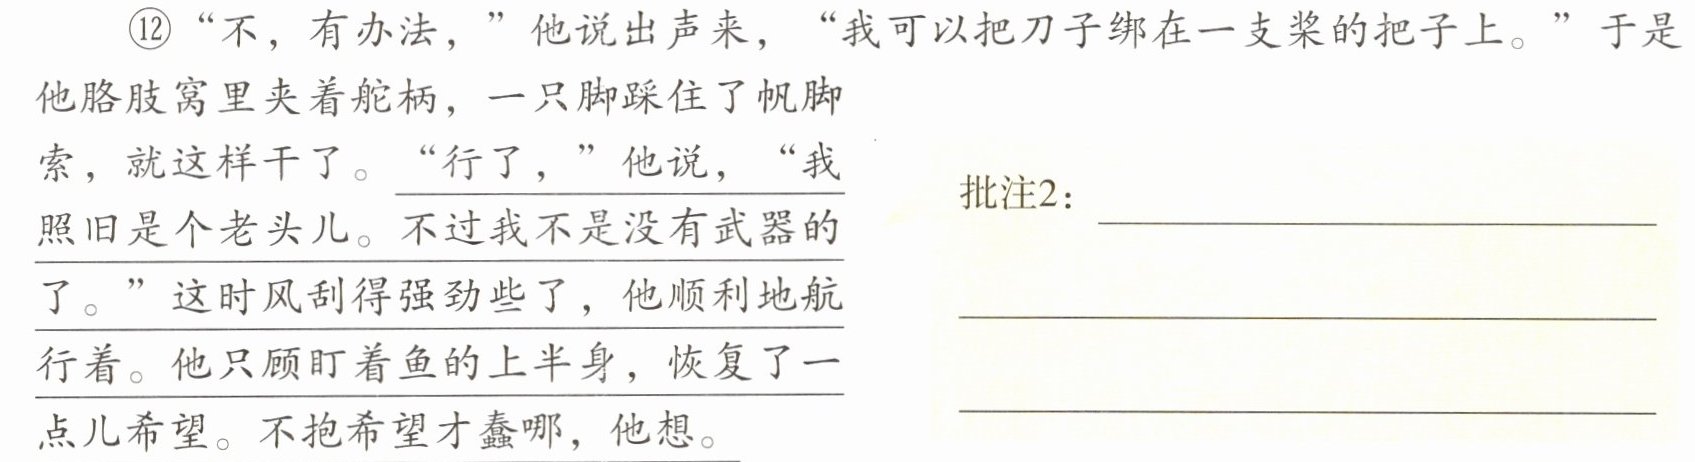 ⑫“不，有办法，”他说出声来，“我可以把刀子绑在一支桨的把子上。”于是
他胳肢窝里夹着舵柄，一只脚踩住了帆脚
索，就这样干了。“行了，”他说，“我
照旧是个老头儿。不过我不是没有武器的
了。”这时风刮得强劲些了，他顺利地航
行着。他只顾盯着鱼的上半身，恢复了一
点儿希望。不抱希望才蠢哪，他想。
批注2：